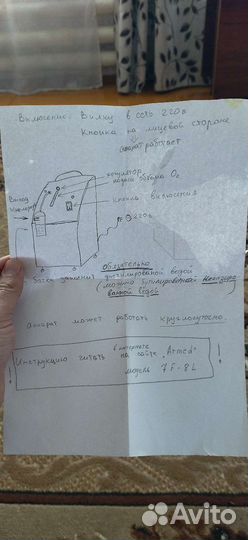 Включение: Вилку в сеть 220в
Кнопка на лицевой стороне
аппарат работает
регулятор
подачи объёма O₂
Кнопка включения
Выход
220в
Обязательно
дистилированной водой
(можно бутилированной Негазиро
ванной водой
Аппарат может работать круглосуточно.
! Инструкцию читать в интернете на сайте „Armed" !
модель 7F-8L
Avito